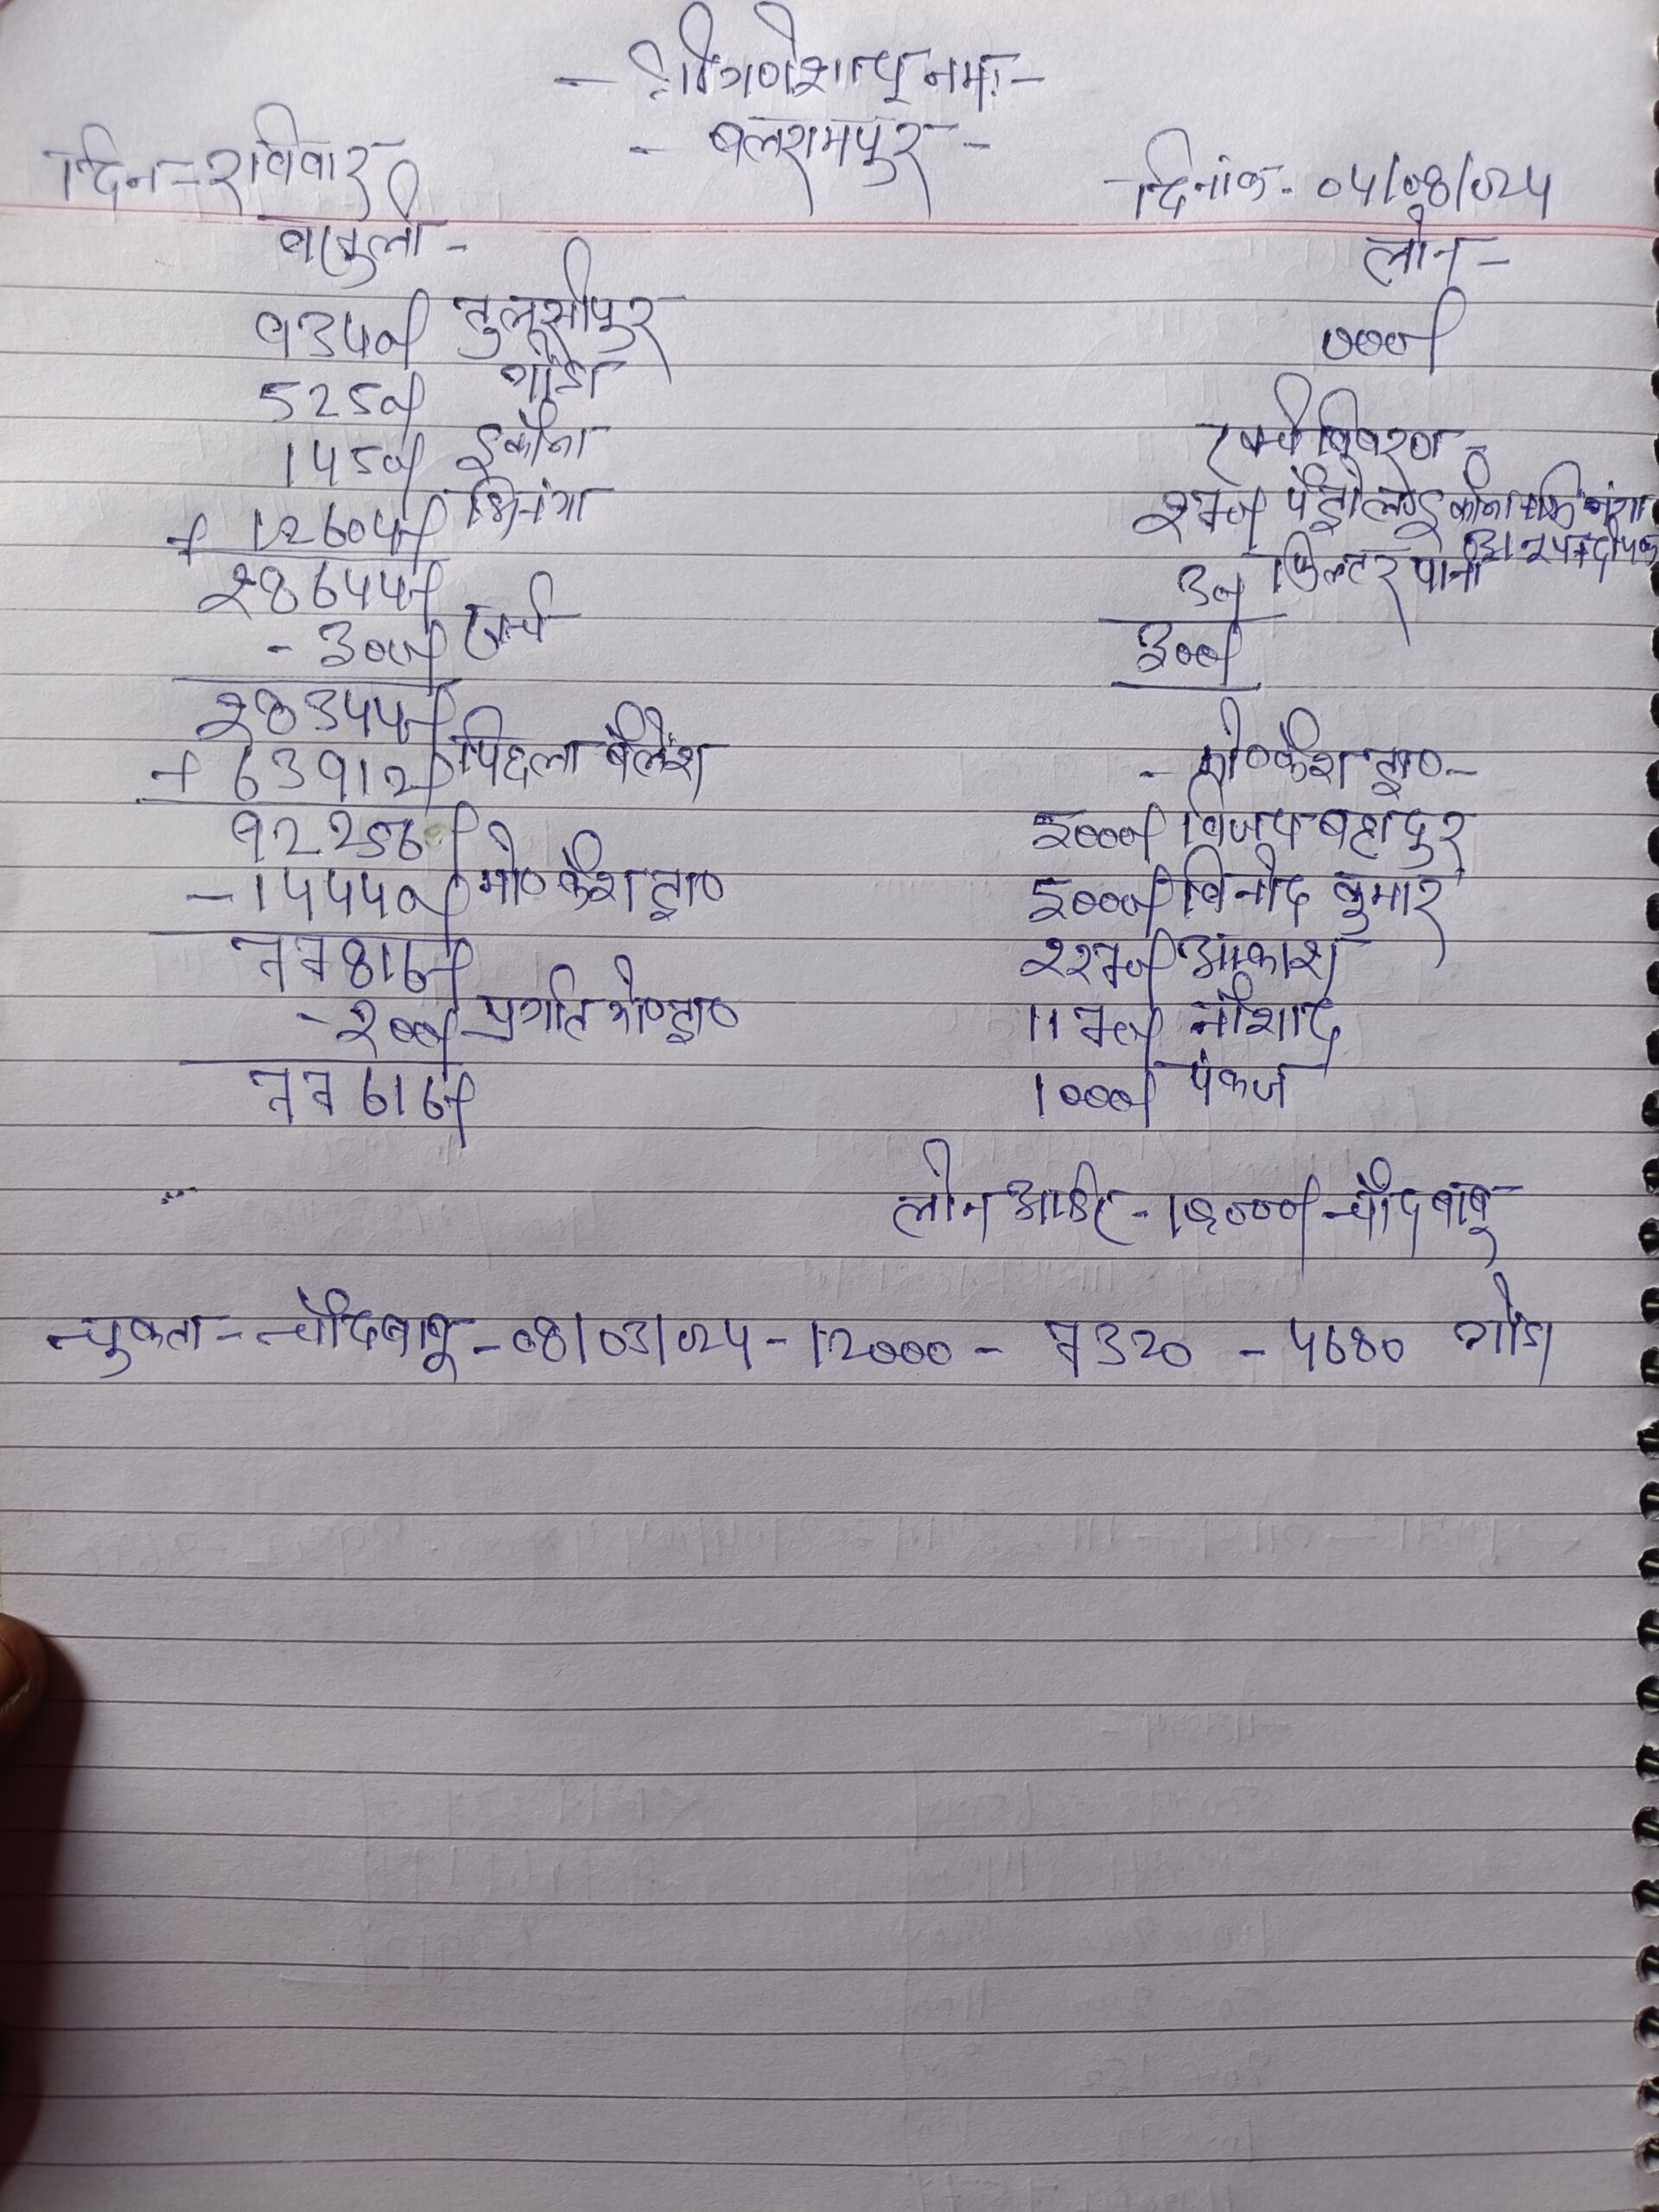 - श्री गणेशाय नमः -
- बलरामपुर -
दिन - रविवार
दिनांक - 04/08/024
वसूली -
9340/- तुलसीपुर
5250/- गोंडा
1450/- इकौना
+ 12604/- भिनंगा
28644/-
- 300/- खर्च
28344/-
+ 63912/- पिछला बैलेंश
92256/-
- 14440/- मो० कैश ट्रा०
77816/-
- 200/- प्रगति मो० ट्रा०
77616/-
लोन -
000/-
खर्च विवरण -
270/- पेट्रोल इकौना + भिनंगा
अनूप + दीपक
30/- फिल्टर पानी
300/-
- मो० कैश ट्रा० -
5000/- विजय बहादुर
5000/- विनोद कुमार
2270/- आकाश
1170/- नौशाद
1000/- पंकज
लोन आर्डर - चाँदबाबू
चुकता - चाँदबाबू - 08/03/024 - 12000 - 7320 - 4680 गोंडा